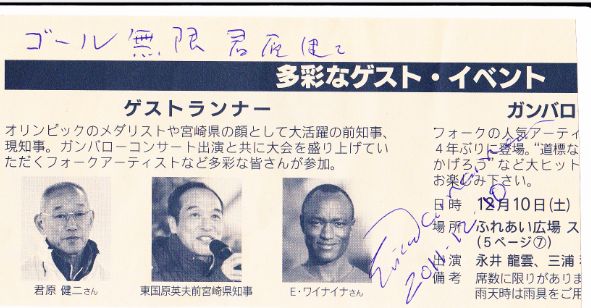 ゴール無限 君原健二
多彩なゲスト・イベント
ゲストランナー
オリンピックのメダリストや宮崎県の顔として大活躍の前知事、
現知事。ガンバローコンサート出演と共に大会を盛り上げてい
ただくフォークアーティストなど多彩な皆さんが参加。
君原 健二さん
東国原英夫前宮崎県知事
E・ワイナイナさん
ガンバロー
フォークの人気アーティ
4年ぶりに登場。“道標な
かげろう”など大ヒット
お楽しみ下さい。
日時 12月10日(土)
場所 ふれあい広場 ス
(5ページ⑦)
出演 永井 龍雲、三浦
備考 席数に限りがありま
雨天時は雨具をご用
2011.12.10